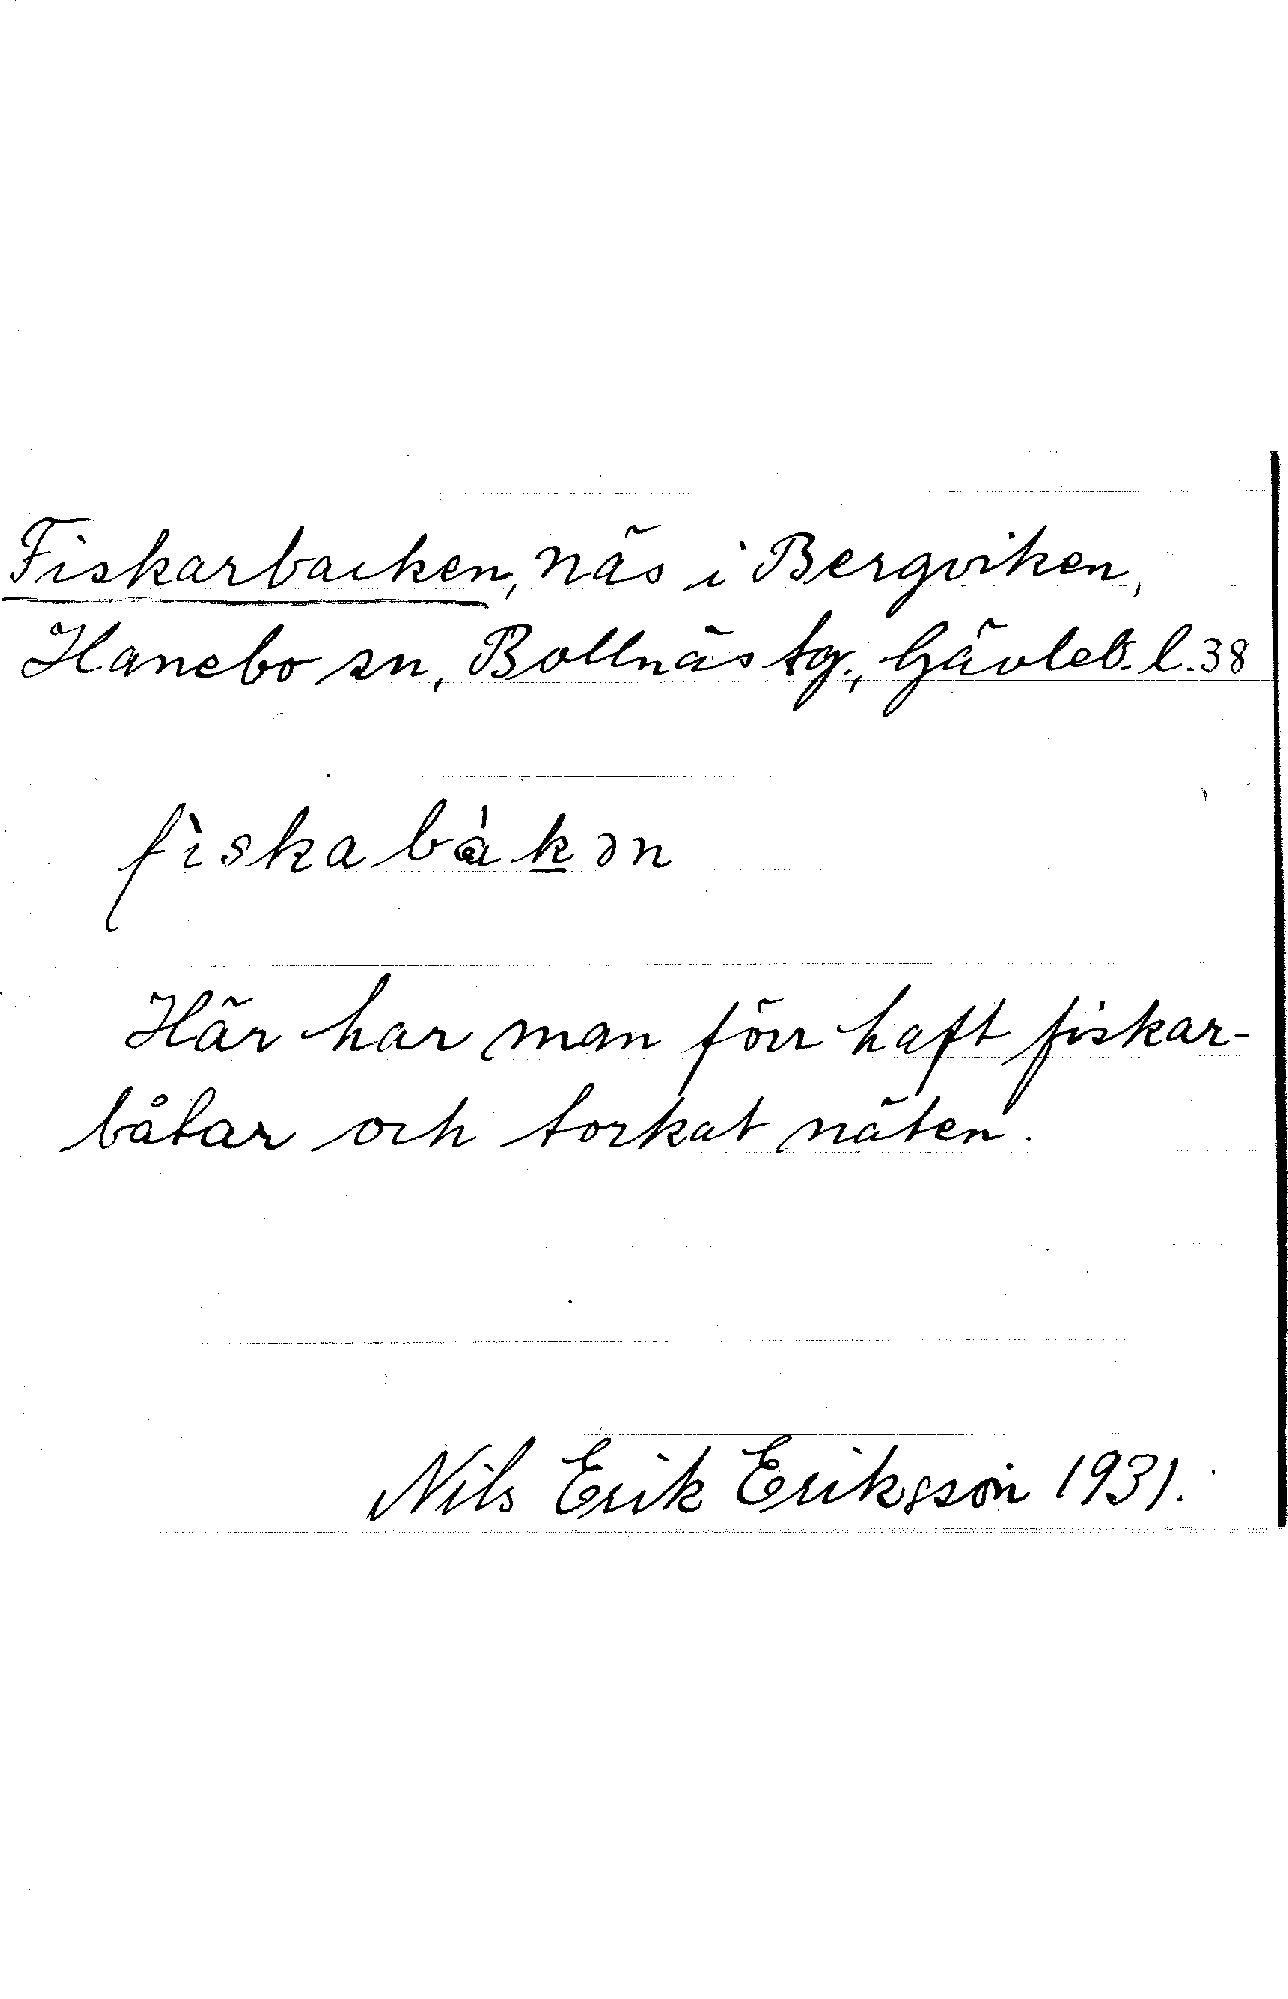 Fiskarbacken, näs i Bergviken,
Hanebo sn, Bollnäs tg., Gävleb. l. 38
fìskabàkən
Här har man förr haft fiskar-
båtar och torkat näten.
Nils Erik Eriksson 1931.